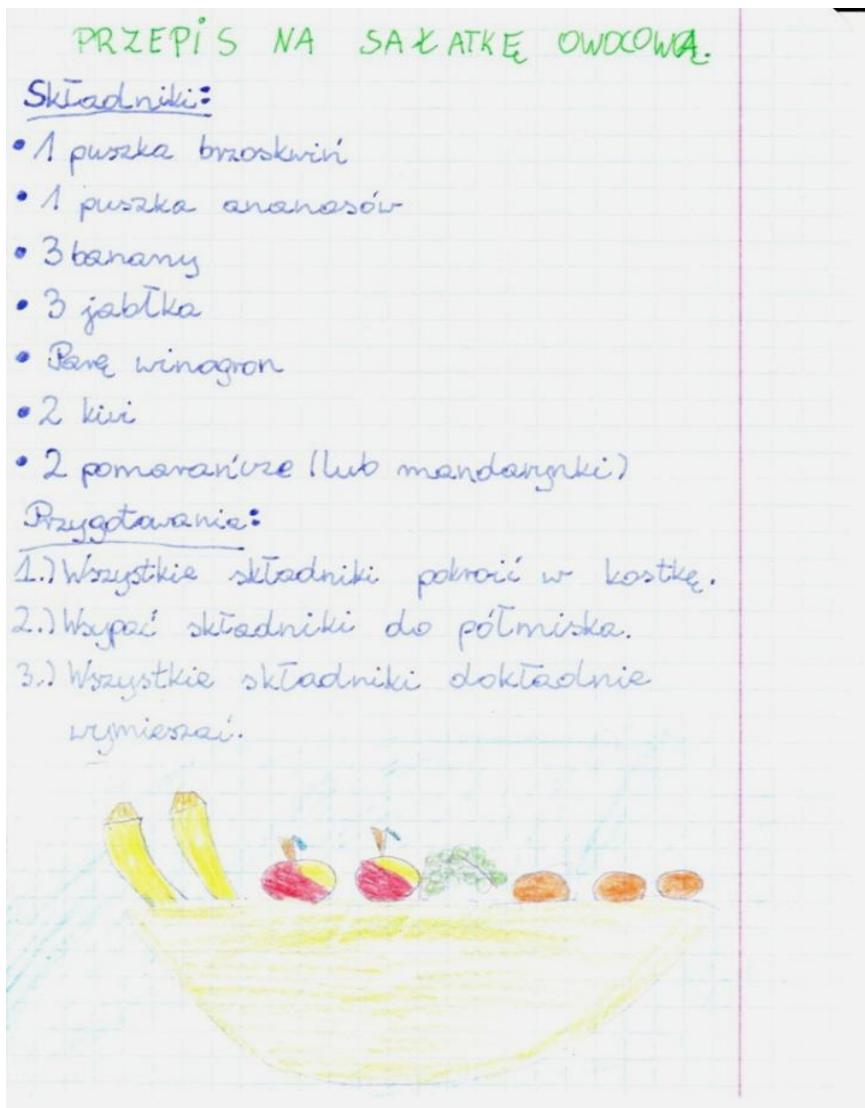 PRZEPIS NA SAŁATKĘ OWOCOWĄ.
Składniki:
• 1 puszka brzoskwiń
• 1 puszka ananasów
• 3 banany
• 3 jabłka
• Parę winogron
• 2 kiwi
• 2 pomarańcze (lub mandarynki)
Przygotowanie:
1.) Wszystkie składniki pokroić w kostkę.
2.) Wsypać składniki do półmiska.
3.) Wszystkie składniki dokładnie
wymieszać.